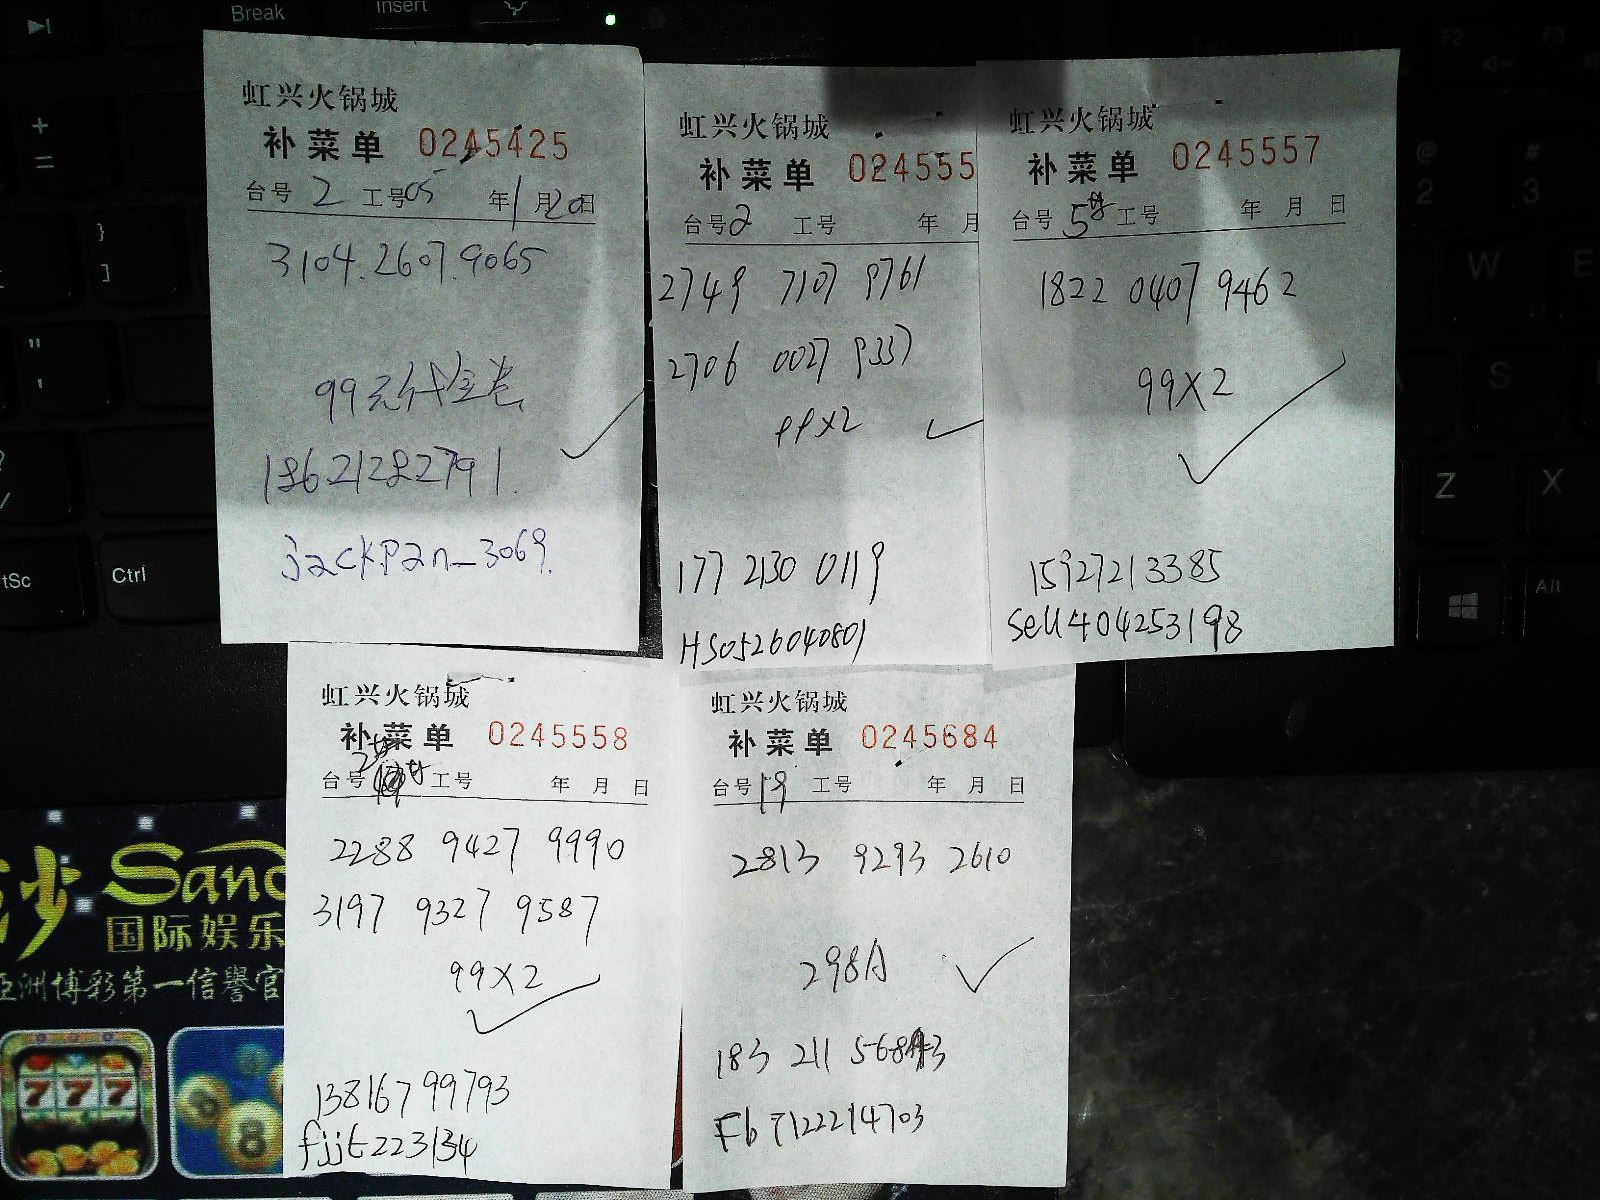 Break
Insert
+
=
}
]
"
'
?
/
tSc
Ctrl
虹兴火锅城
补菜单 0245425
台号 2 工号 05 年 1 月 20 日
3104.2607.9065
99元代金卷
18621282791.
jackpan_3069.
虹兴火锅城
补菜单 024555
台号 2 工号 年 月
2749 7107 9761
2706 0027 9337
99X2
177 2130 0119
HS0526040801
虹兴火锅城
补菜单 0245557
台号 5 工号 年 月 日
1822 0407 9462
99X2
15927213385
sell404253198
F2
F3
@
2
#
3
W
E
S
Z
X
Alt
虹兴火锅城
补菜单 0245558
台号 工号 年 月 日
2288 9427 9990
3197 9327 9587
99X2
13816799793
fjjt223134
虹兴火锅城
补菜单 0245684
台号 19 工号 年 月 日
2813 9293 2610
298A
183 211 568
Fb7122214703
沙 Sand
国际娱乐
亞洲博彩第一信譽官
777
8